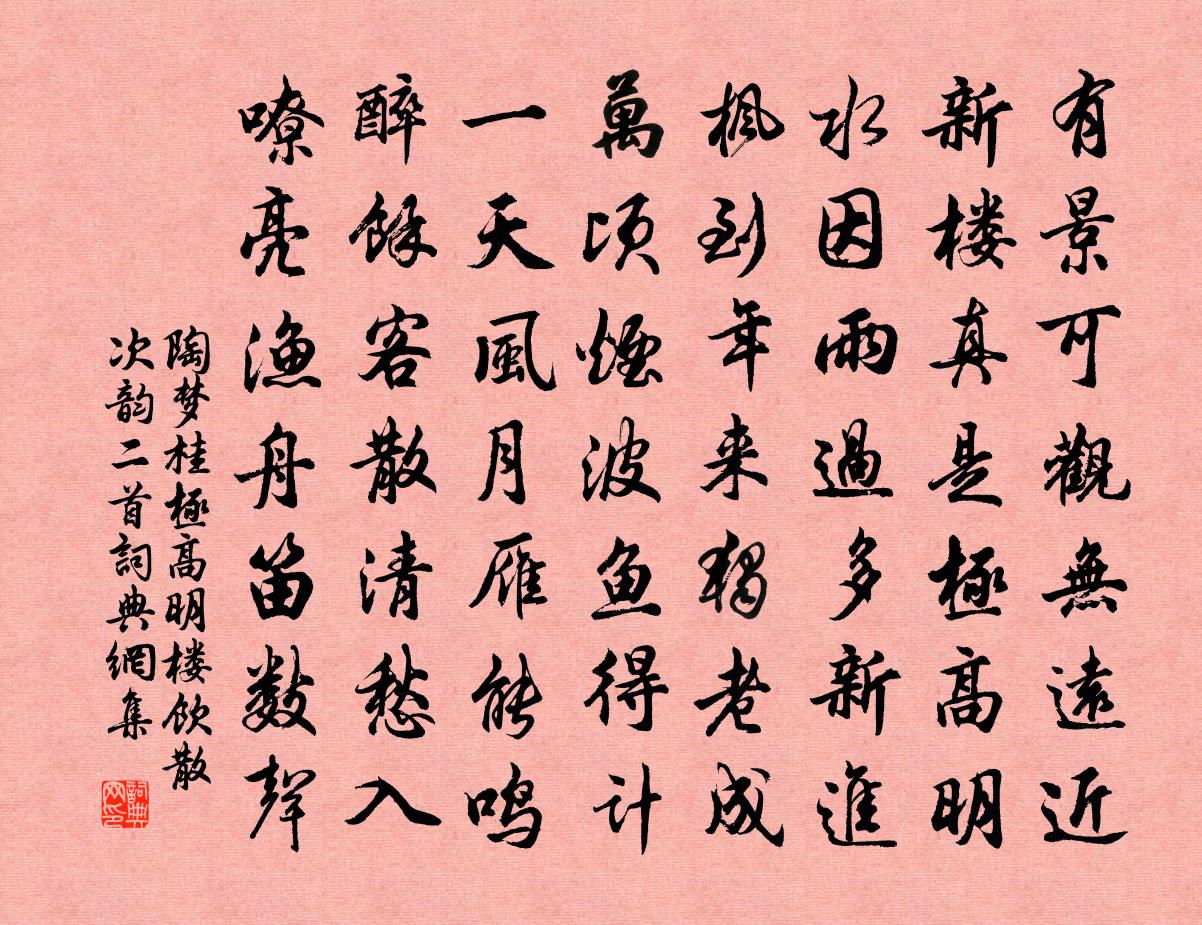 有景可觀無遠近
新楼真是極高明
水因雨過多新進
楓到年来独老成
萬頃煙波鱼得计
一天風月雁能鸣
醉餘客散清愁入
嘹亮漁舟笛数聲
陶梦桂極高明楼饮散
次韵二首詞典網集
詞典网印